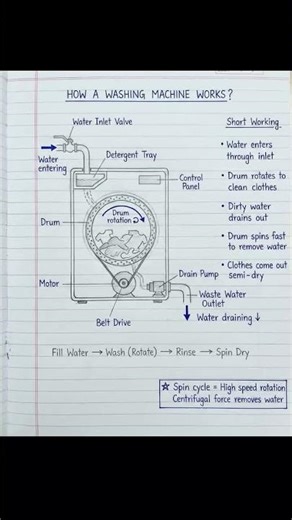 HOW A WASHING MACHINE WORKS?
Water Inlet Valve
Water
entering
Detergent Tray
Control
Panel
Drum
Drum
rotation
Motor
Belt Drive
Drain Pump
Waste Water
Outlet
Water draining ↓
Short Working
• Water enters
through inlet
• Drum rotates to
clean clothes
• Dirty water
drains out
• Drum spins fast
to remove water
• Clothes come out
semi-dry
Fill Water → Wash (Rotate) → Rinse → Spin Dry
☆ Spin cycle = High speed rotation
Centrifugal force removes water